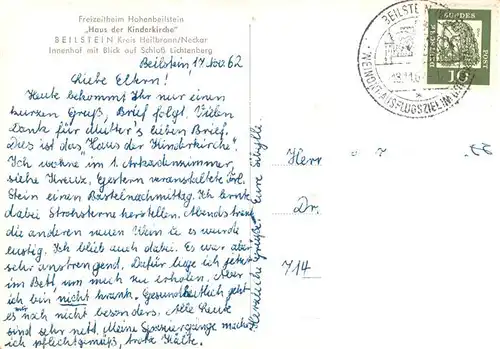 Freizeitheim Hohenbeilstein
„Haus der Kinderkirche"
BEILSTEIN Kreis Heilbronn/Neckar
Innenhof mit Blick auf Schloß Lichtenberg
Beilstein, 17. Nov. 62
Liebe Eltern!
Heute bekommt Ihr nur einen
kurzen Gruß, Brief folgt. Vielen
Dank für Mutter's lieben Brief.
Dies ist das "Haus der Kinderkirche".
Ich wohne im 1. Arkadenzimmer,
siehe Kreuz. Gestern veranstaltete Frl.
Stein einen Bastelnachmittag. Ich lernte
dabei Strohsterne herstellen. Abends trank
die anderen neuen Wein u. es wurde
lustig. Ich blieb auch dabei. Es war aber
sehr anstrengend. Dafür liege ich jetzt
im Bett, um mich zu erholen. Aber
ich bin nicht krank. Gesundheitlich geht
es mir noch nicht besonders. Alle Leute
sind sehr nett. Meine Spaziergänge mache
ich pflichtgemäß, trotz Kälte.
Herzliche Grüße! Eure Sibylle.
Herr
Dr.
714
BEILSTEIN
WEINORT AUSFLUGSZIEL
DEUTSCHE BUNDESPOST
10